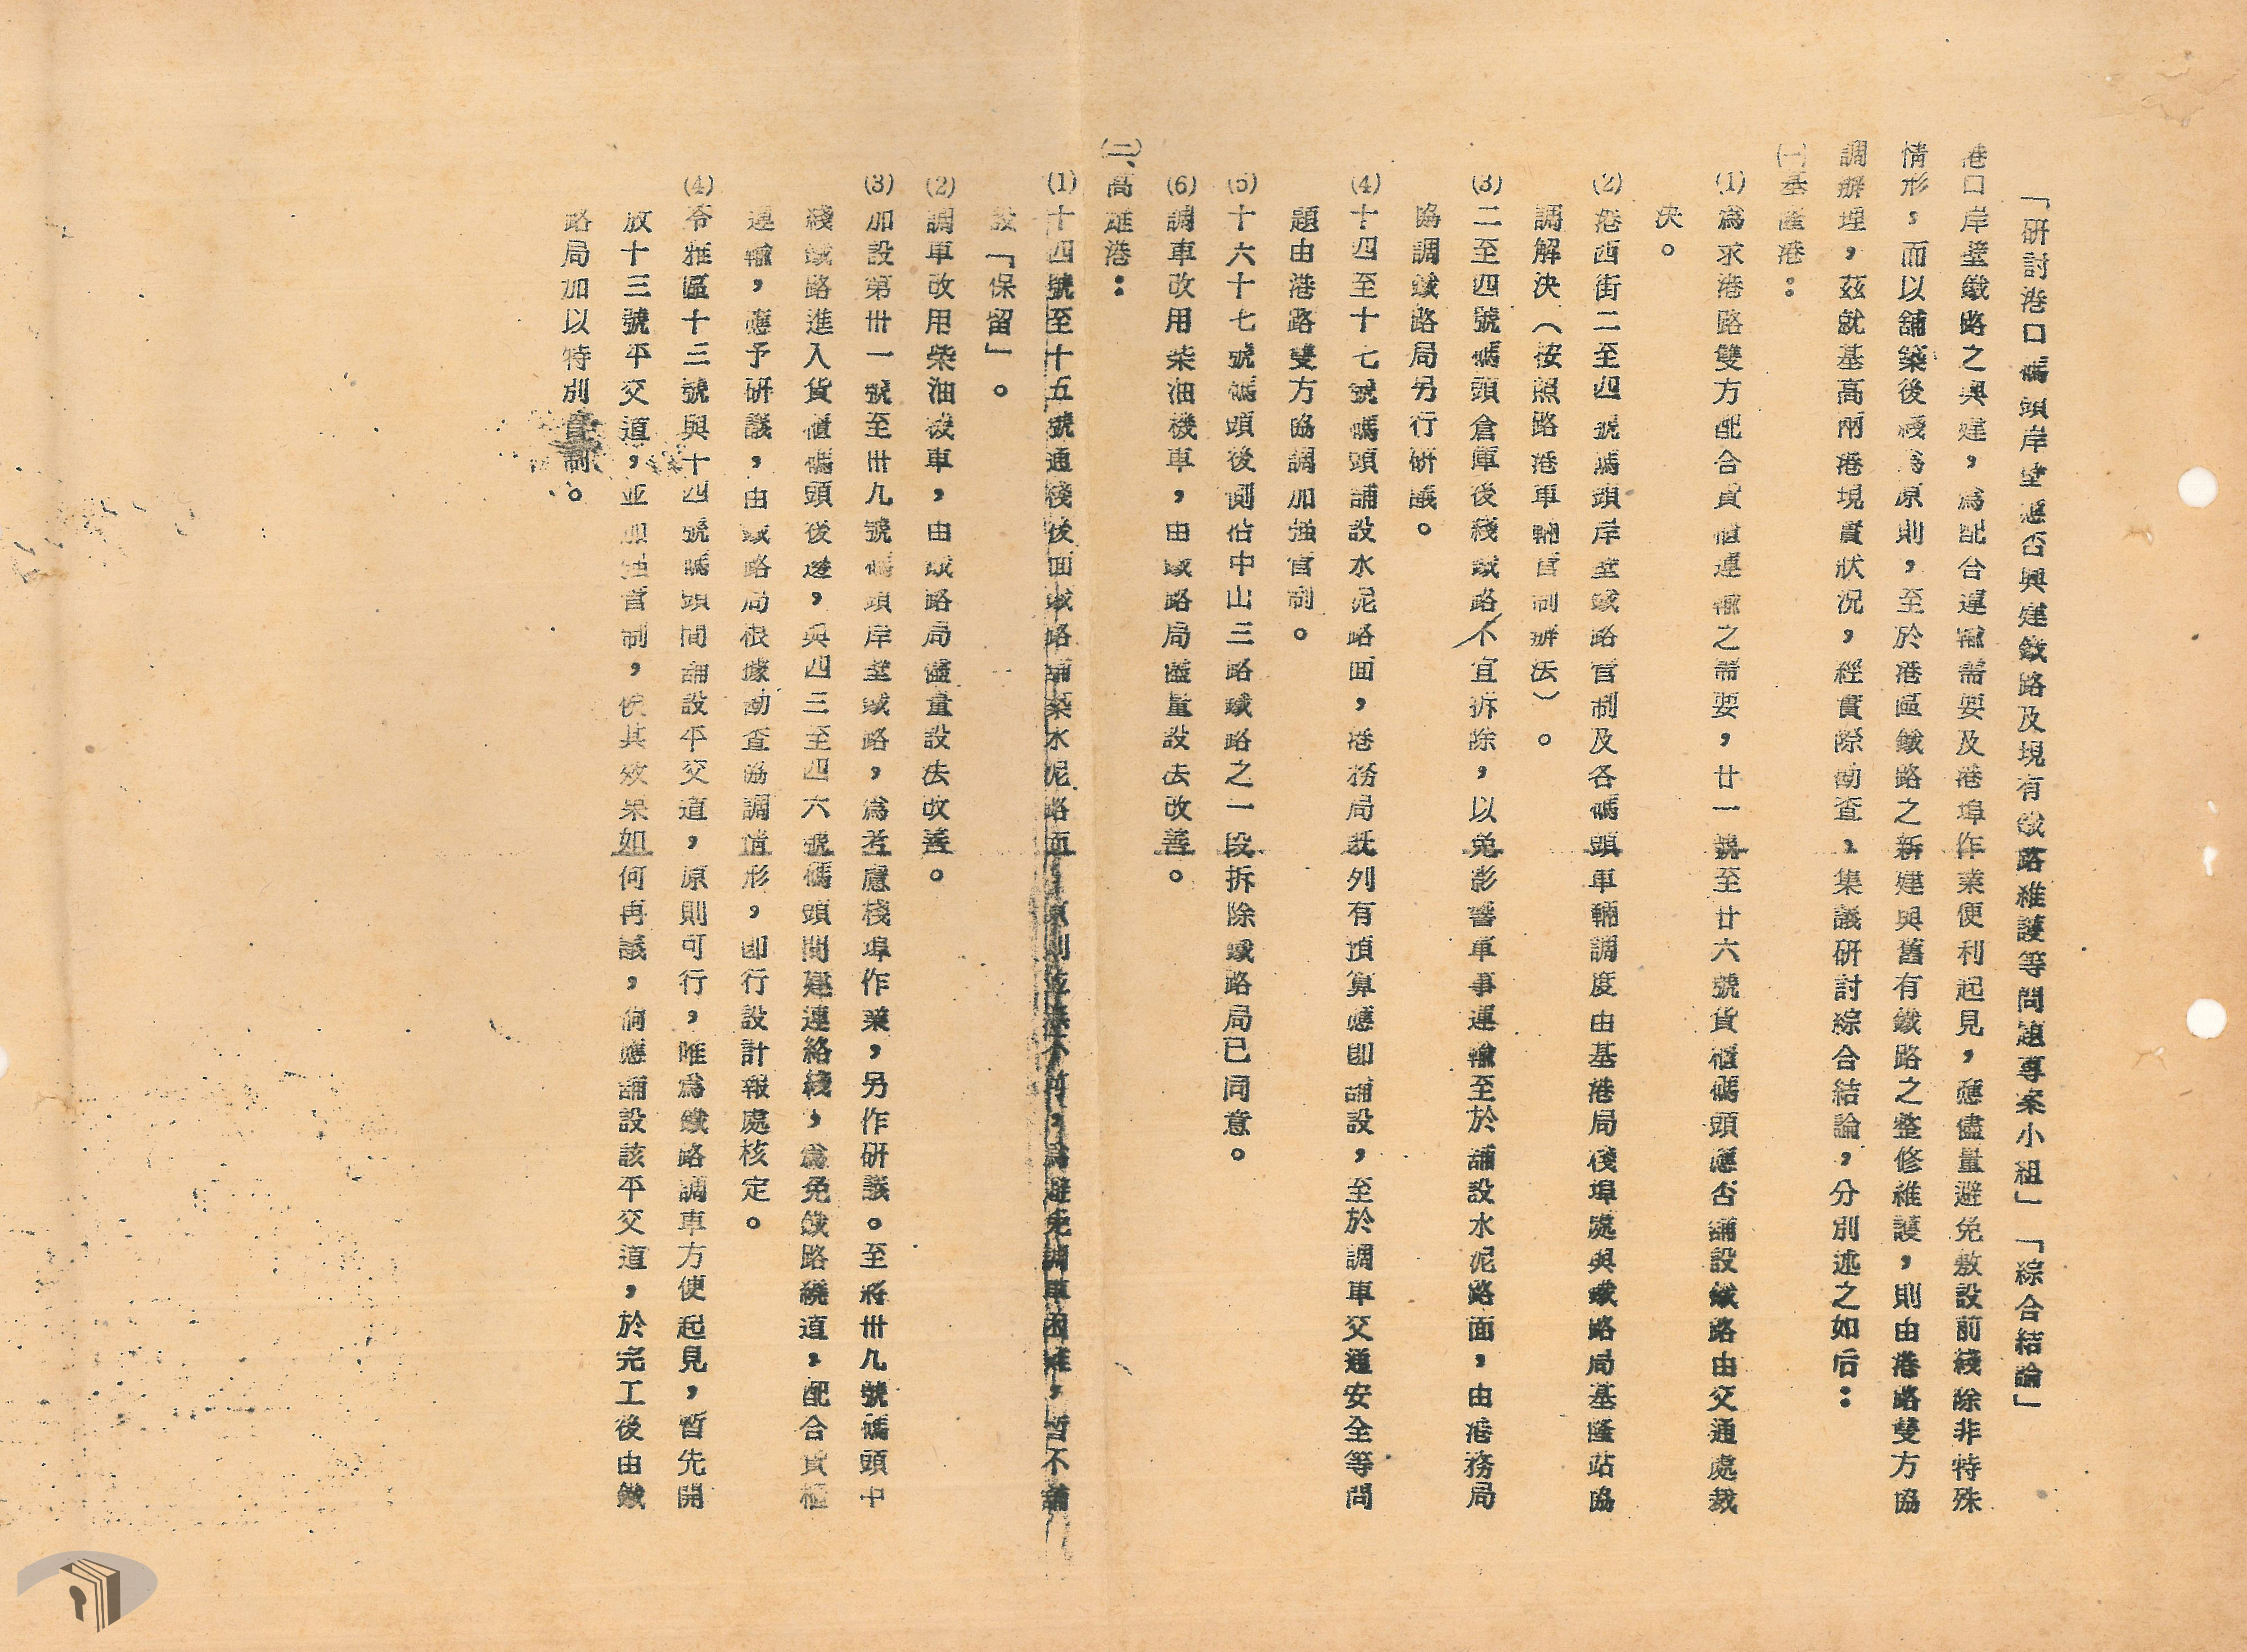 「研討港口碼頭岸壁應否興建鐵路及現有鐵路維護等問題專案小組」「綜合結論」
港口岸壁鐵路之興建，為配合運輸需要及港埠作業便利起見，應儘量避免敷設前綫除非特殊
情形，而以舖築後綫為原則，至於港區鐵路之新建與舊有鐵路之整修維護，則由港路雙方協
調辦理，茲就基高兩港現實狀况，經實際勘查，集議研討綜合結論，分別述之如后：
㈠基隆港：
(1)為求港路雙方配合貨櫃運輸之需要，廿一號至廿六號貨櫃碼頭應否舖設鐵路由交通處裁
決。
(2)港西街二至四號碼頭岸壁鐵路管制及各碼頭車輛調度由基港局棧埠處與鐵路局基隆站協
調解決（按照路港車輛管制辦法）。
(3)二至四號碼頭倉庫後綫鐵路不宜拆除，以免影響軍事運輸至於舖設水泥路面，由港務局
協調鐵路局另行研議。
(4)十四至十七號碼頭舖設水泥路面，港務局既列有預算應即舖設，至於調車交通安全等問
題由港路雙方協調加強管制。
(5)十六十七號碼頭後側佔中山三路鐵路之一段拆除鐵路局已同意。
(6)調車改用柴油機車，由鐵路局儘量設法改善。
㈡、高雄港：
(1)十四號至十五號通棧後面鐵路舖築水泥路面，原則並無不可，為避免調車困難，暫不舖
設「保留」。
(2)調車改用柴油機車，由鐵路局儘量設法改善。
(3)加設第卅一號至卅九號碼頭岸壁鐵路，為考慮棧埠作業，另作研議。至將卅九號碼頭中
綫鐵路進入貨櫃碼頭後邊，與四三至四六號碼頭間建連絡綫，為免鐵路繞道，配合貨櫃
運輸，應予研議，由鐵路局根據勘查協調情形，即行設計報處核定。
(4)苓雅區十三號與十四號碼頭間舖設平交道，原則可行，唯為鐵路調車方便起見，暫先開
放十三號平交道，並加強管制，俟其效果如何再議，倘應舖設該平交道，於完工後由鐵
路局加以特別管制。